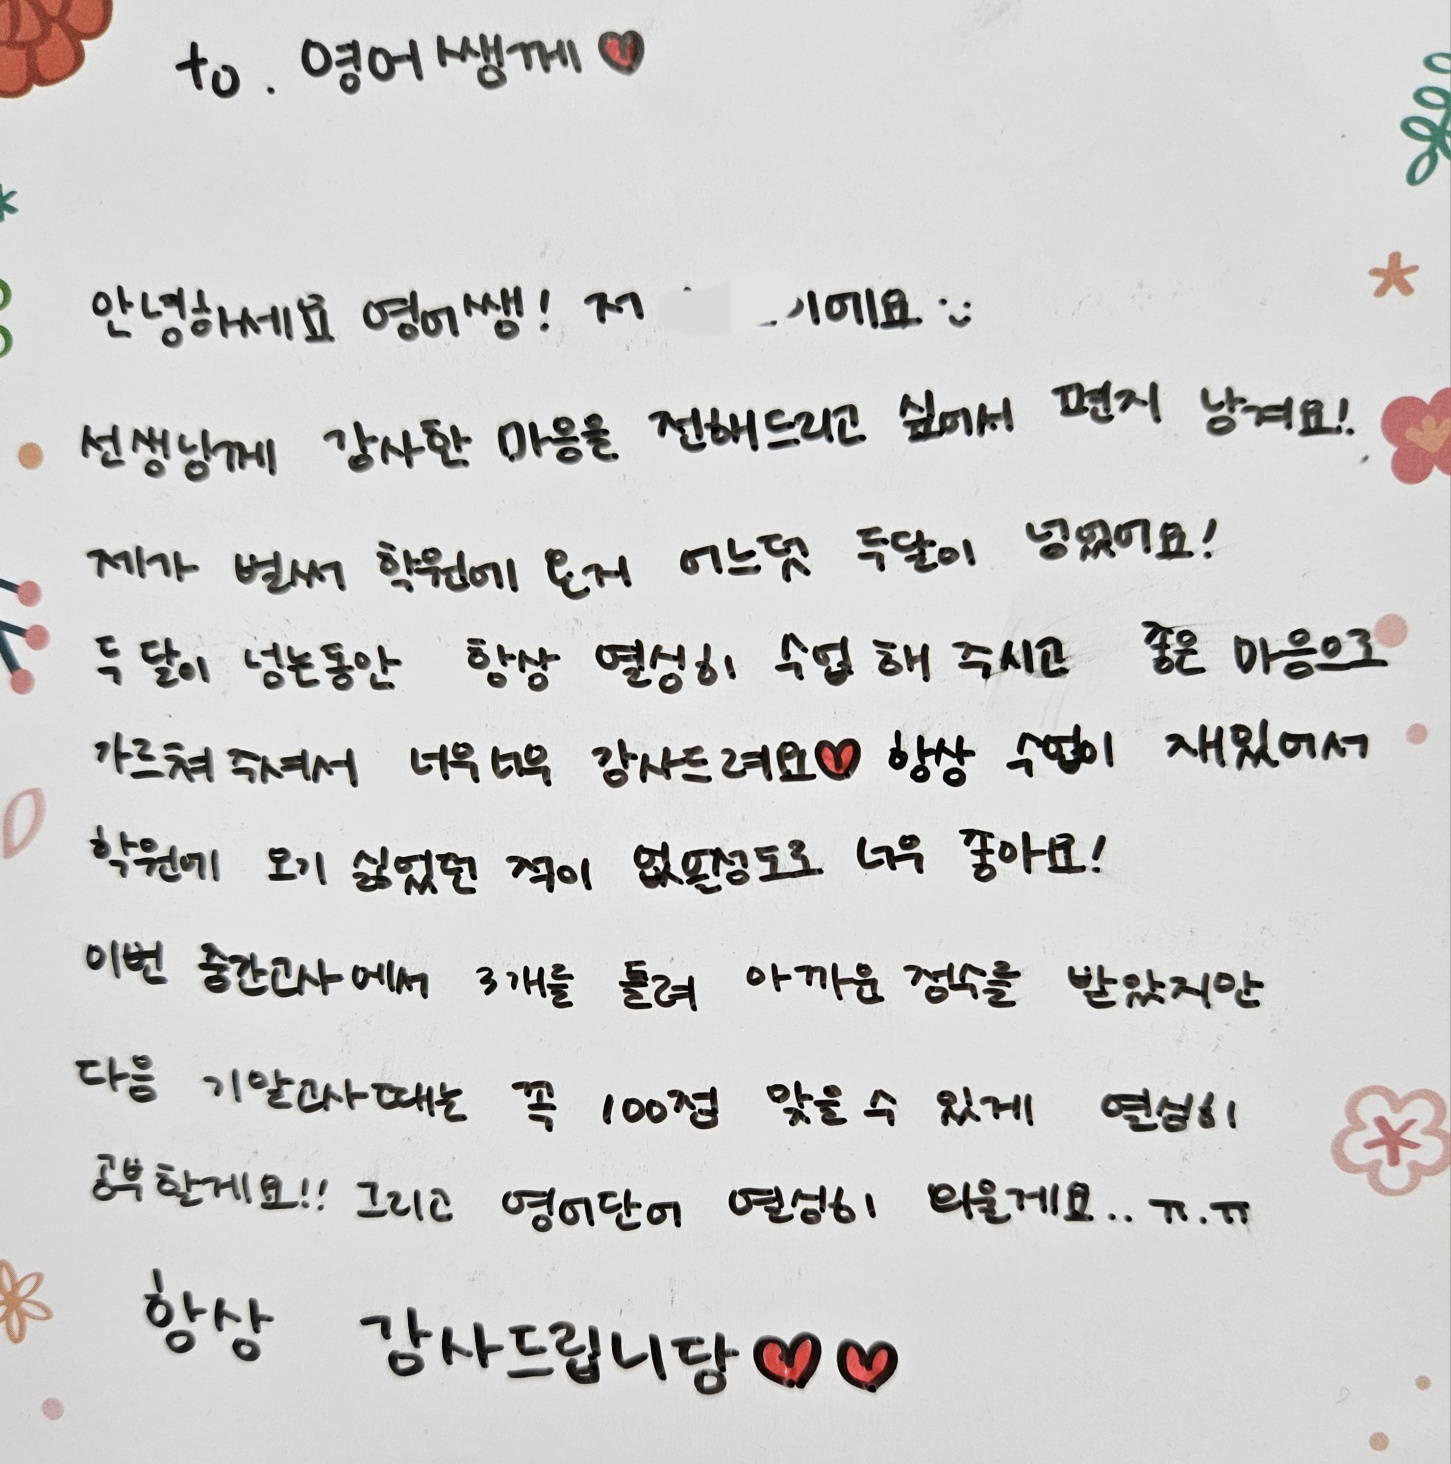 to. 영어쌤께♥
안녕하세요 영어쌤! 저 이에요 :)
선생님께 감사한 마음을 전해드리고 싶어서 편지 남겨요!
제가 벌써 학원에 온지 어느덧 두달이 넘었어요!
두 달이 넘는동안 항상 열심히 수업 해 주시고 좋은 마음으로
가르쳐주셔서 너무너무 감사드려요♥ 항상 수업이 재밌어서
학원에 오기 싫었던 적이 없을정도로 너무 좋아요!
이번 중간고사에서 3개를 틀려 아까운 점수를 받았지만
다음 기말고사때는 꼭 100점 맞을 수 있게 열심히
공부할게요!! 그리고 영어단어 열심히 외울게요.. ㅠ.ㅠ
항상 감사드립니당♥♥